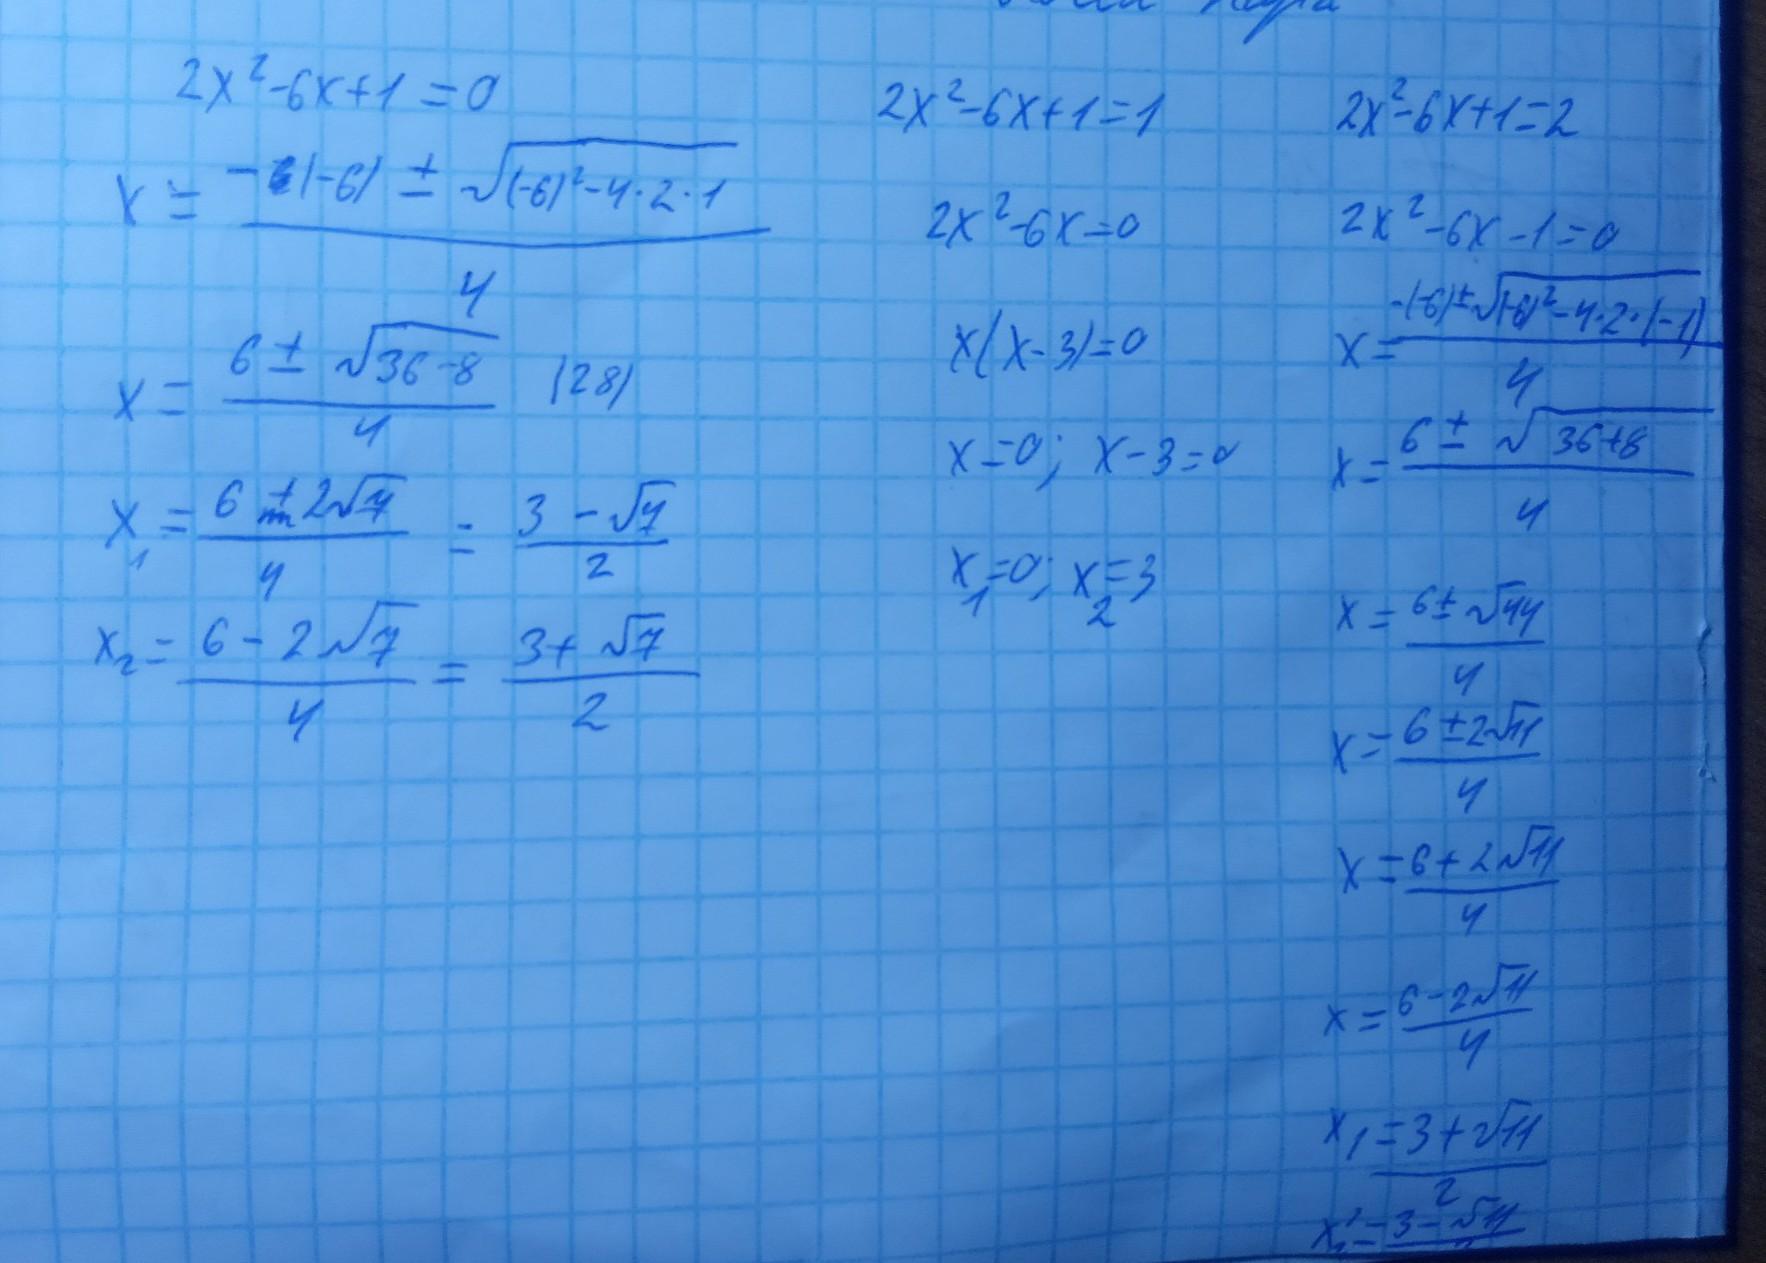 2x²-6x+1=0
x = -(-6) ± √(-6)²-4·2·1 / 4
x = 6 ± √36-8 / 4 (28)
x₁ = 6 ± 2√7 / 4 = 3 - √7 / 2
x₂ = 6 - 2√7 / 4 = 3 + √7 / 2
2x²-6x+1=1
2x²-6x=0
x(x-3)=0
x=0; x-3=0
x₁=0; x₂=3
2x²-6x+1=2
2x²-6x-1=0
x= -(-6)±√(-6)²-4·2·(-1) / 4
x= 6 ± √36+8 / 4
x= 6± √44 / 4
x= 6 ±2√11 / 4
x= 6+2√11 / 4
x= 6-2√11 / 4
x₁=3+√11 / 2
x₂=3-√11